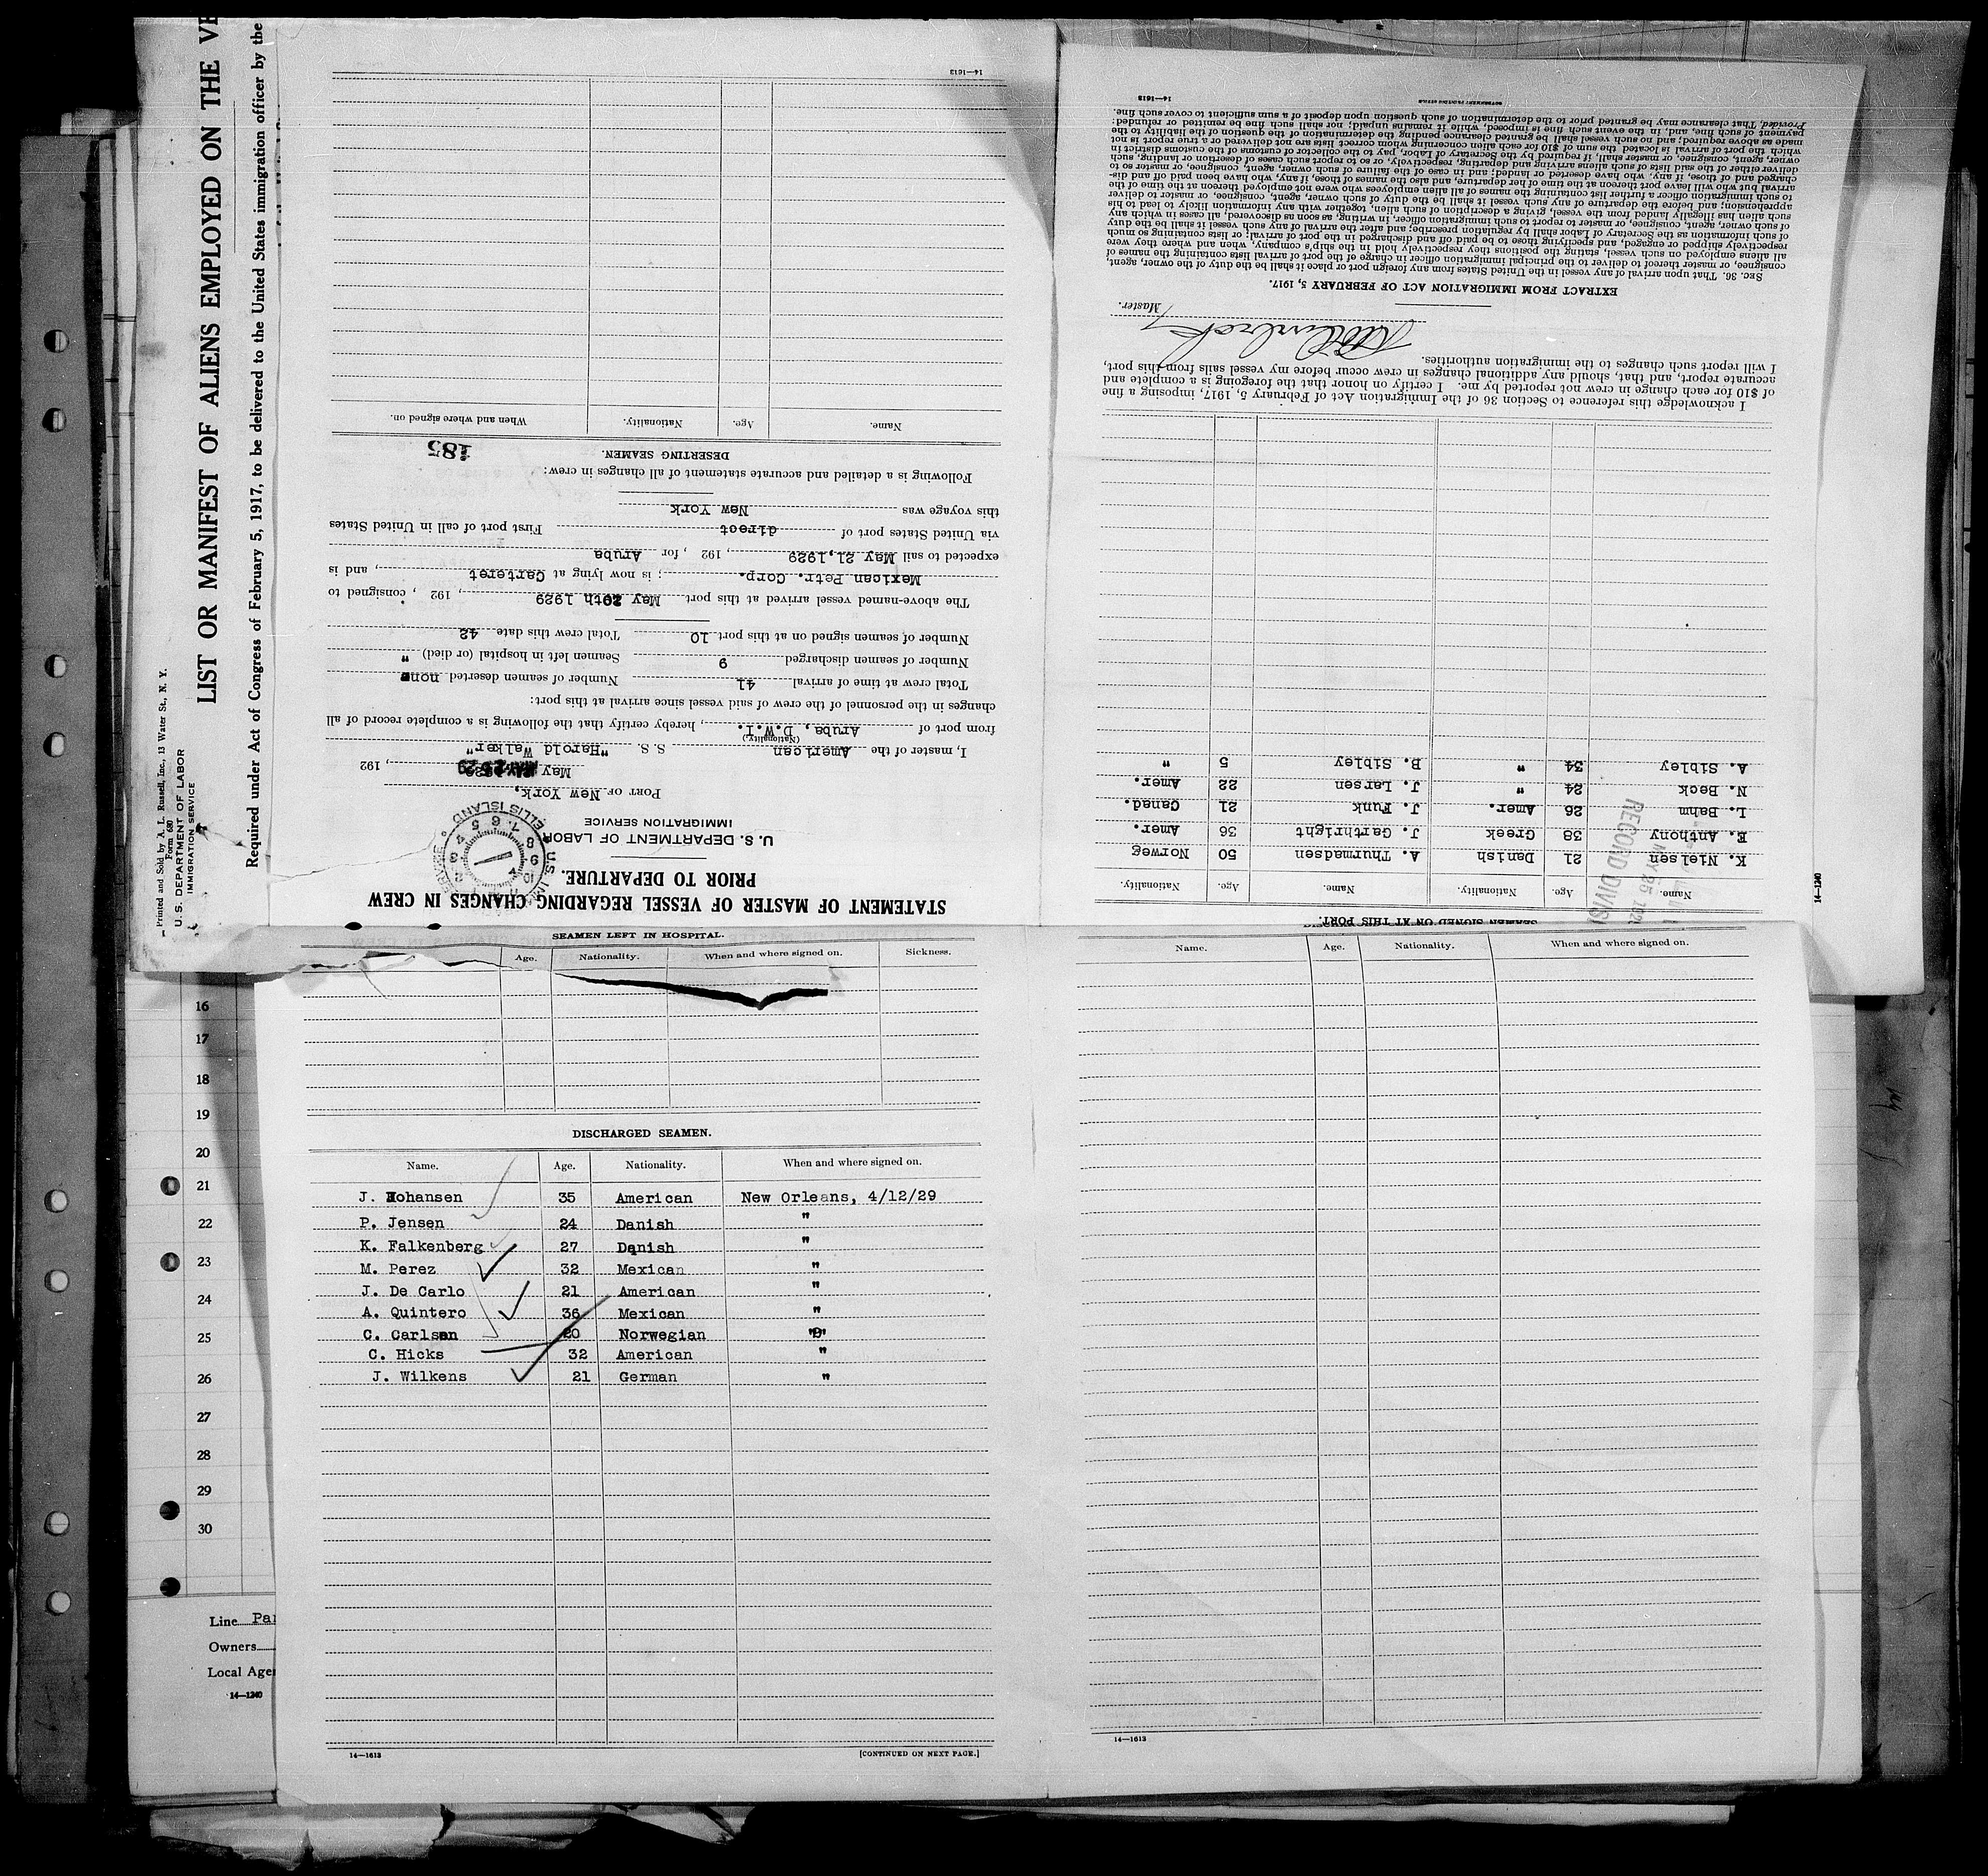 LIST OR MANIFEST OF ALIENS EMPLOYED ON THE VE
Required under Act of Congress of February 5, 1917, to be delivered to the United States immigration officer by the
Printed and Sold by A. L. Russell, Inc., 13 Water St., N. Y.
Form 680
U. S. DEPARTMENT OF LABOR
IMMIGRATION SERVICE
STATEMENT OF MASTER OF VESSEL REGARDING CHANGES IN CREW
PRIOR TO DEPARTURE.
U. S. DEPARTMENT OF LABOR
IMMIGRATION SERVICE
ELLIS ISLAND
PORT OF New York,
May 1929, 192
I, master of the American S. S. "Harold Walker"
(Nationality)
from port of Aruba, D.W.I., hereby certify that the following is a complete record of all
changes in the personnel of the crew of said vessel since arrival at this port:
Total crew at time of arrival 41 Number of seamen deserted none
Number of seamen discharged 9 Seamen left in hospital (or died) "
Number of seamen signed on at this port 10 Total crew this date 42
The above-named vessel arrived at this port May 20th 1929, 192 , consigned to
Mexican Petr. Corp. ; is now lying at Carteret, and is
expected to sail May 21, 1929, 192 , for Aruba
via United States port of direct First port of call in United States
this voyage was New York
Following is a detailed and accurate statement of all changes in crew:
185
DESERTING SEAMEN.
Name. Age. Nationality. When and where signed on.
14—1613
SEAMEN SIGNED ON AT THIS PORT.
Name. Age. Nationality. Name. Age. Nationality.
K. Nielsen 21 Danish A. Thurmadsen 50 Norweg
E. Anthony 38 Greek J. Garthright 36 Amer.
L. Bahm 26 Amer. J. Funk 21 Canad.
N. Beck 24 " J. Larsen 22 Amer.
A. Sibley 34 " B. Sibley 5 "
MAY 25 192
RECORD DIVIS
I acknowledge this reference to Section 36 of the Immigration Act of February 5, 1917, imposing a fine
of $10 for each change in crew not reported by me. I certify on honor that the foregoing is a complete and
accurate report, and that, should any additional changes in crew occur before my vessel sails from this port,
I will report such changes to the immigration authorities.
Master.
EXTRACT FROM IMMIGRATION ACT OF FEBRUARY 5, 1917.
SEC. 36. That upon arrival of any vessel in the United States from any foreign port or place it shall be the duty of the owner, agent,
consignee, or master thereof to deliver to the principal immigration officer in charge of the port of arrival lists containing the names of
all aliens employed on such vessel, stating the positions they respectively hold in the ship's company, when and where they were
respectively shipped or engaged, and specifying those to be paid off and discharged in the port of arrival; or lists containing so much
of such information as the Secretary of Labor shall by regulation prescribe; and after the arrival of any such vessel it shall be the duty
of such owner, agent, consignee, or master to report to such immigration officer, in writing, as soon as discovered, all cases in which any
such alien has illegally landed from the vessel, giving a description of such alien, together with any information likely to lead to his
apprehension; and before the departure of any such vessel it shall be the duty of such owner, agent, consignee, or master to deliver
to such immigration officer a further list containing the names of all alien employees who were not employed thereon at the time of the
arrival but who will leave port thereon at the time of her departure, and also the names of those, if any, who have been paid off and dis-
charged and of those, if any, who have deserted or landed; and in case of the failure of such owner, agent, consignee, or master so to
deliver either of the said lists of such aliens arriving and departing, respectively, or so to report such cases of desertion or landing, such
owner, agent, consignee, or master shall, if required by the Secretary of Labor, pay to the collector of customs of the customs district in
which the port of arrival is located the sum of $10 for each alien concerning whom correct lists are not delivered or a true report is not
made as above required; and no such vessel shall be granted clearance pending the determination of the question of the liability to the
payment of such fine, and, in the event such fine is imposed, while it remains unpaid; nor shall such fine be remitted or refunded:
Provided, That clearance may be granted prior to the determination of such question upon deposit of a sum sufficient to cover such fine.
GOVERNMENT PRINTING OFFICE
14—1613
14—1240
SEAMEN LEFT IN HOSPITAL.
Age. Nationality. When and where signed on. Sickness.
DISCHARGED SEAMEN.
Name. Age. Nationality. When and where signed on.
J. Johansen 35 American New Orleans, 4/12/29
P. Jensen 24 Danish "
K. Falkenberg 27 Danish "
M. Perez 32 Mexican "
J. De Carlo 21 American "
A. Quintero 36 Mexican "
C. Carlsen 20 Norwegian "
C. Hicks 32 American "
J. Wilkens 21 German "
14—1613
[CONTINUED ON NEXT PAGE.]
Name. Age. Nationality. When and where signed on.
14—1613
16
17
18
19
20
21
22
23
24
25
26
27
28
29
30
Line Pa
Owners
Local Age
14—1240